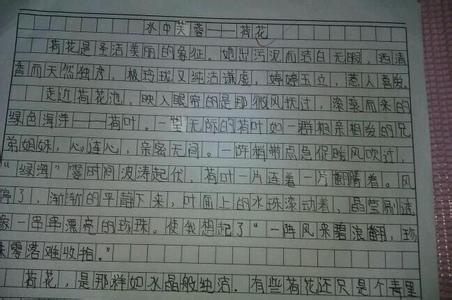 水中芙蓉——荷花
荷花是圣洁美丽的象征。她出污泥而洁白无瑕，西清
香而天然独厚，
纯洁谦虚，婷婷玉立，惹人喜爱。
走近荷花池，映入眼帘的是那微风吹过，滚滚而来的
绿色海洋——荷叶。一望无际的荷叶如一群相亲相爱的兄
弟姐妹，心连心，亲密无间。一阵稍带点急促的风吹过，
“绿海”霎时间波涛起伏，荷叶一片连着一片翻腾着。风
停了，渐渐的平静下来，叶面上的水珠滚动着，晶莹剔透
像一串串漂亮的珍珠。使我想起了“一阵风来碧浪翻，珍
珠零落难收拾。”
荷花，是那样如水晶般纯洁。有些荷花还只是个青里